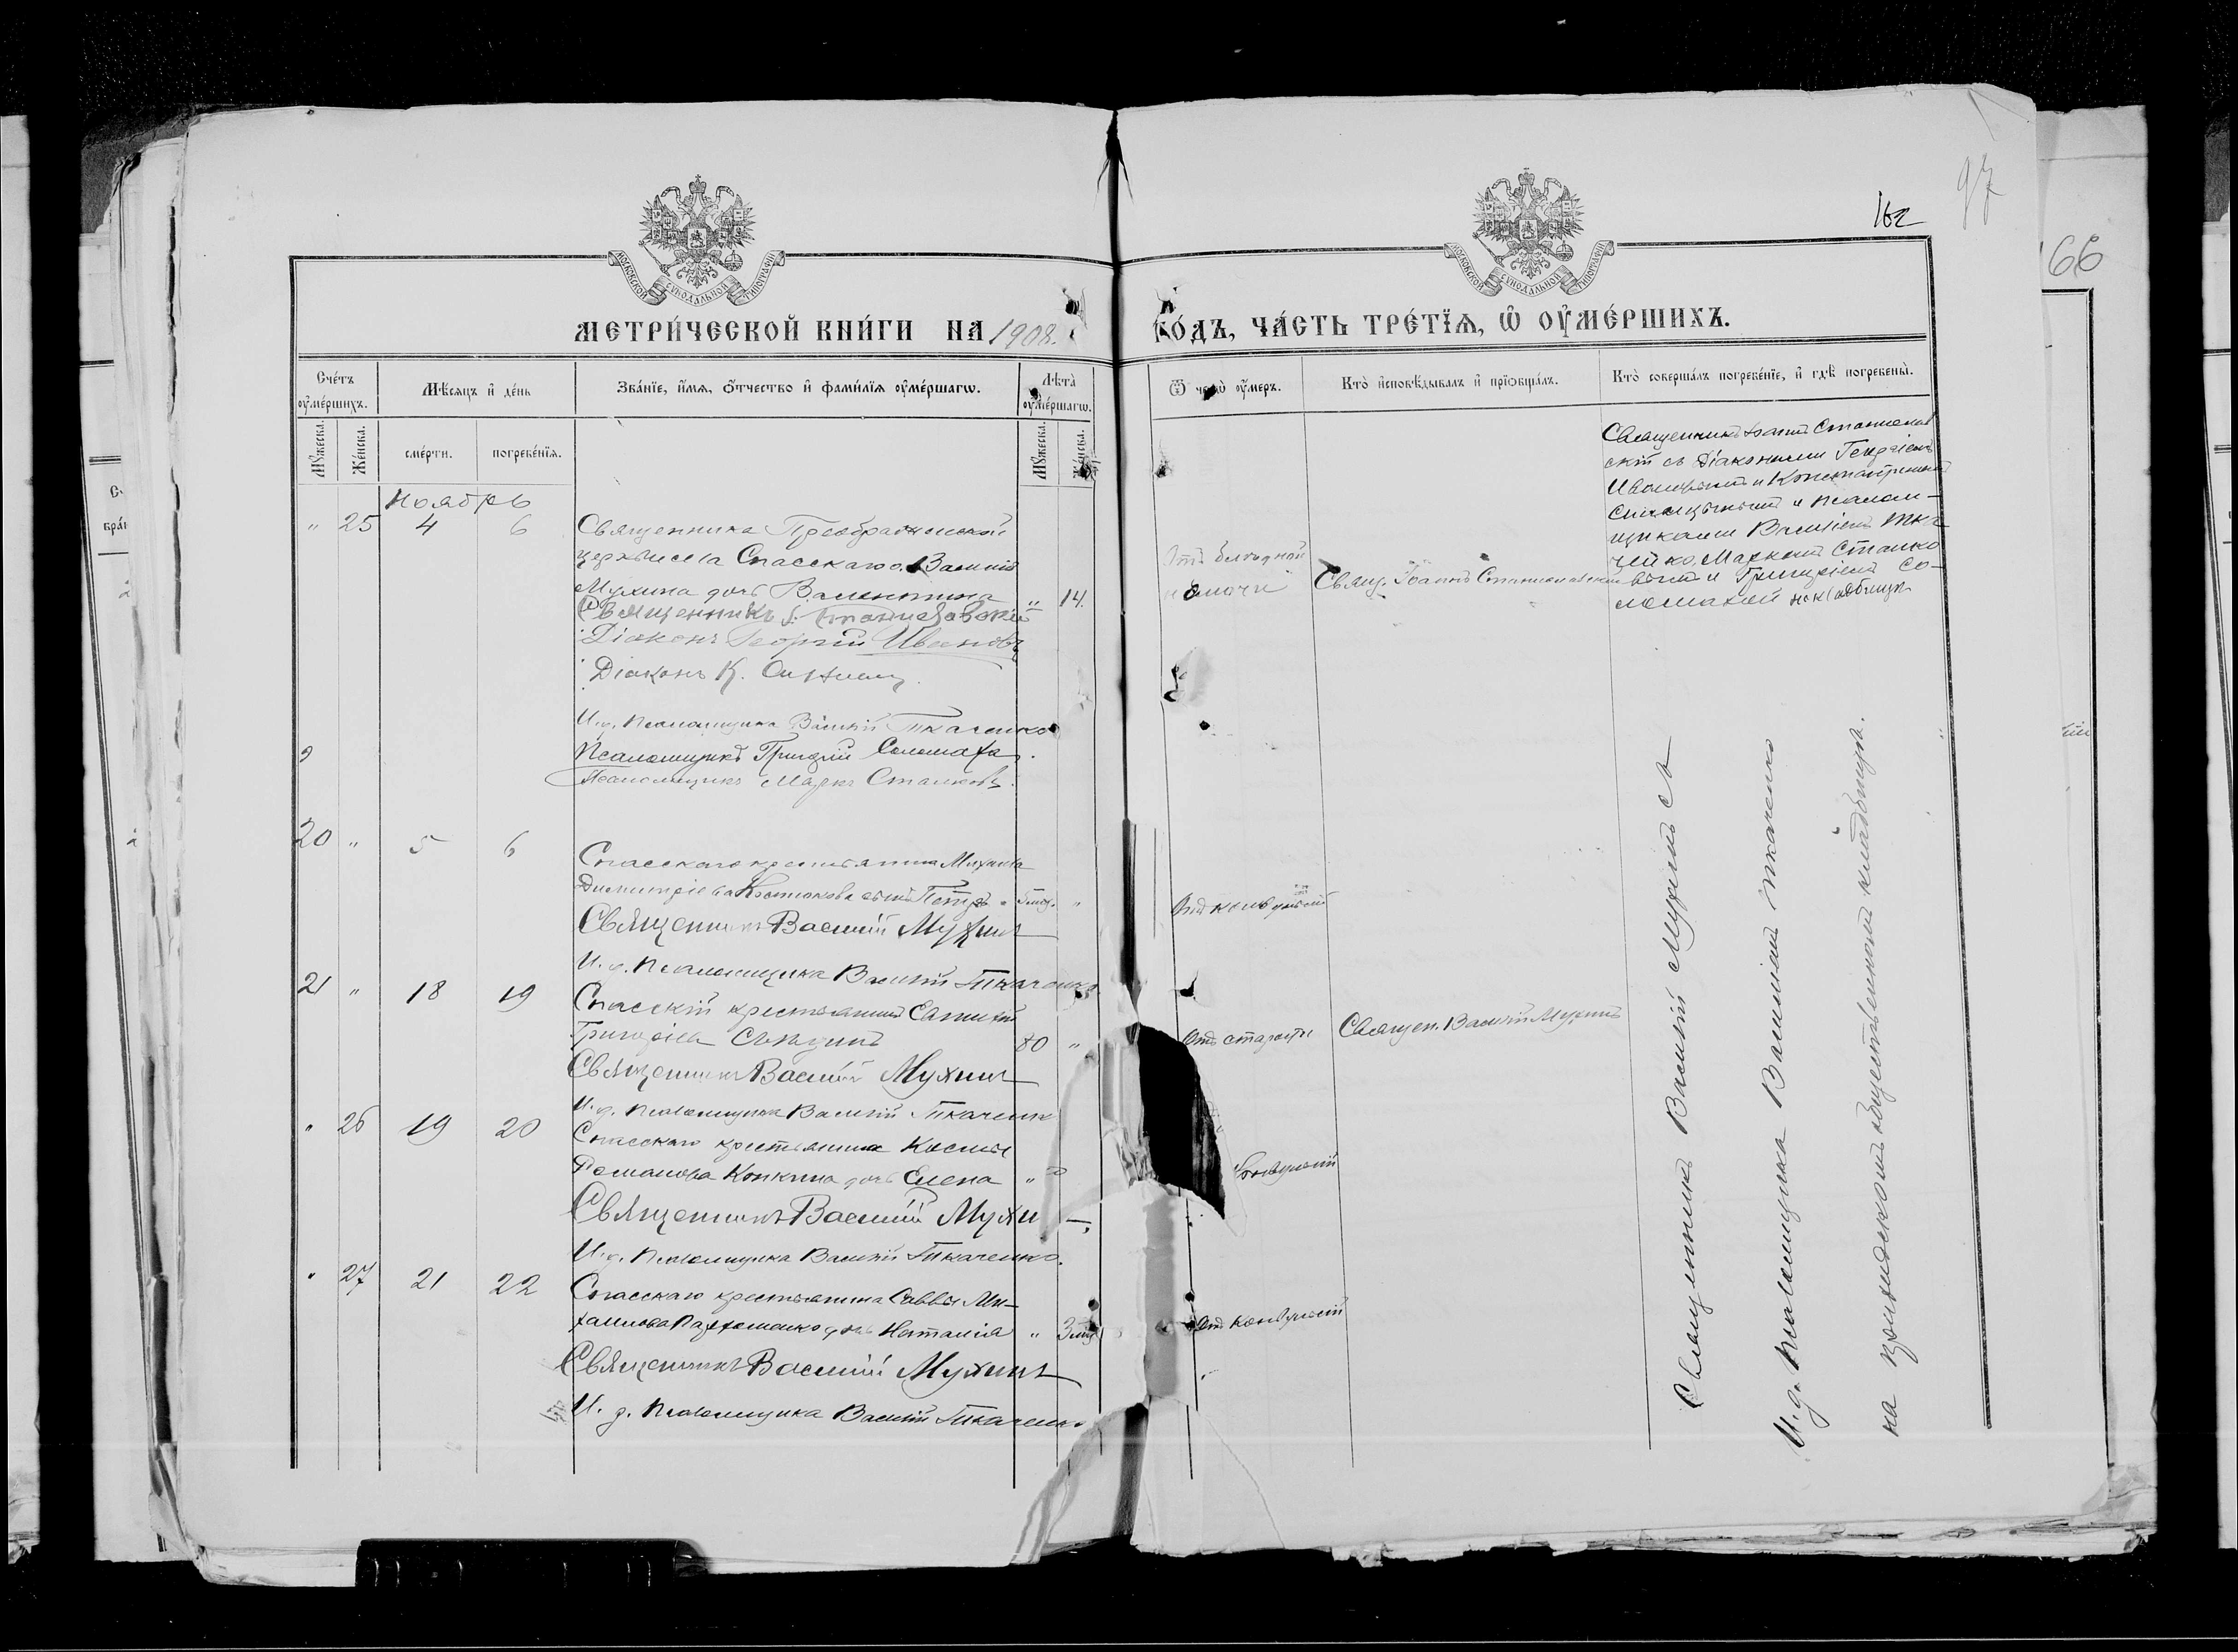 97
162
66
МОСКОВСКОЙ СѴНОДАЛЬНОЙ ТИПОГРАФІИ
МОСКОВСКОЙ СѴНОДАЛЬНОЙ ТИПОГРАФІИ
МЕТРИ́ЧЕСКОЙ КНИ́ГИ НА 1908.
ГО́ДЪ, ЧА́СТЬ ТРЕ́ТІѦ, Ѡ҆ ОУ҆МЕ́РШИХЪ.
Сче́тъ оу҆ме́ршихъ.
Мѣ́сяцъ и҆ де́нь
Зва́нїе, и҆́мя, ѻ҆́тчество и҆ фами́лїя оу҆ме́ршагѡ.
Лѣта̀ оу҆ме́ршагѡ.
Ѿ чегѡ̀ оу҆́меръ.
Кто̀ и҆сповѣ́дывалъ и҆ прїѡбща́лъ.
Кто̀ соверша́лъ погребе́нїе, и҆ гдѣ̀ погребены̀.
Мꙋ́жеска.
Же́нска.
сме́рти.
погребе́нїя.
Мꙋ́жеска.
Же́нска.
Ноябрь
" 25 4 6
Священника Преображенской
церкви села Спасскаго о. Василія
Мухина дочь Валентина " 14.
Священникъ І. Станиславскій
Діаконъ Георгій Ивановъ
Діаконъ К.
И. д. Псаломщика Василій Ткаченко
Псаломщикъ Григорій Соломаха.
Псаломщикъ Маркъ Станковъ.
и
Свящ. Іоаннъ Станиславскій
Священникъ Іоаннъ Станислав
скій съ Діаконами Георгіемъ
Ивановымъ и Константиномъ
и псалом-
щиками Василіемъ Тка-
ченко, Маркомъ Станко
вымъ и Григоріемъ Со-
ломахой на кладбищѣ
20 " 5 6
Спасскаго крестьянина Михаила
Димитріева сынъ Петръ "
Священникъ Василій Мухинъ
И. д. Псаломщика Василій Ткаченко.
21 " 18 19
Спасскій крестьянинъ
Григоріевъ 80 "
Священникъ Василій Мухинъ
И. д. Псаломщика Василій Ткаченко
Отъ старости
Священ. Василій Мухинъ
" 26 19 20
Спасскаго крестьянина Космы
Романова Конкина дочь Елена "
Священникъ Василій Мухинъ
И. д. Псаломщика Василій Ткаченко.
" 27 21 22
Спасскаго крестьянина Саввы Ми-
хаилова Пархоменко дочь Наталія "
Священникъ Василій Мухинъ
И. д. Псаломщика Василій Ткаченко
Отъ конвульсій
Священникъ Василій Мухинъ съ
И. д. Псаломщика Василіемъ Ткаченко
на приходскомъ общественномъ кладбищѣ.